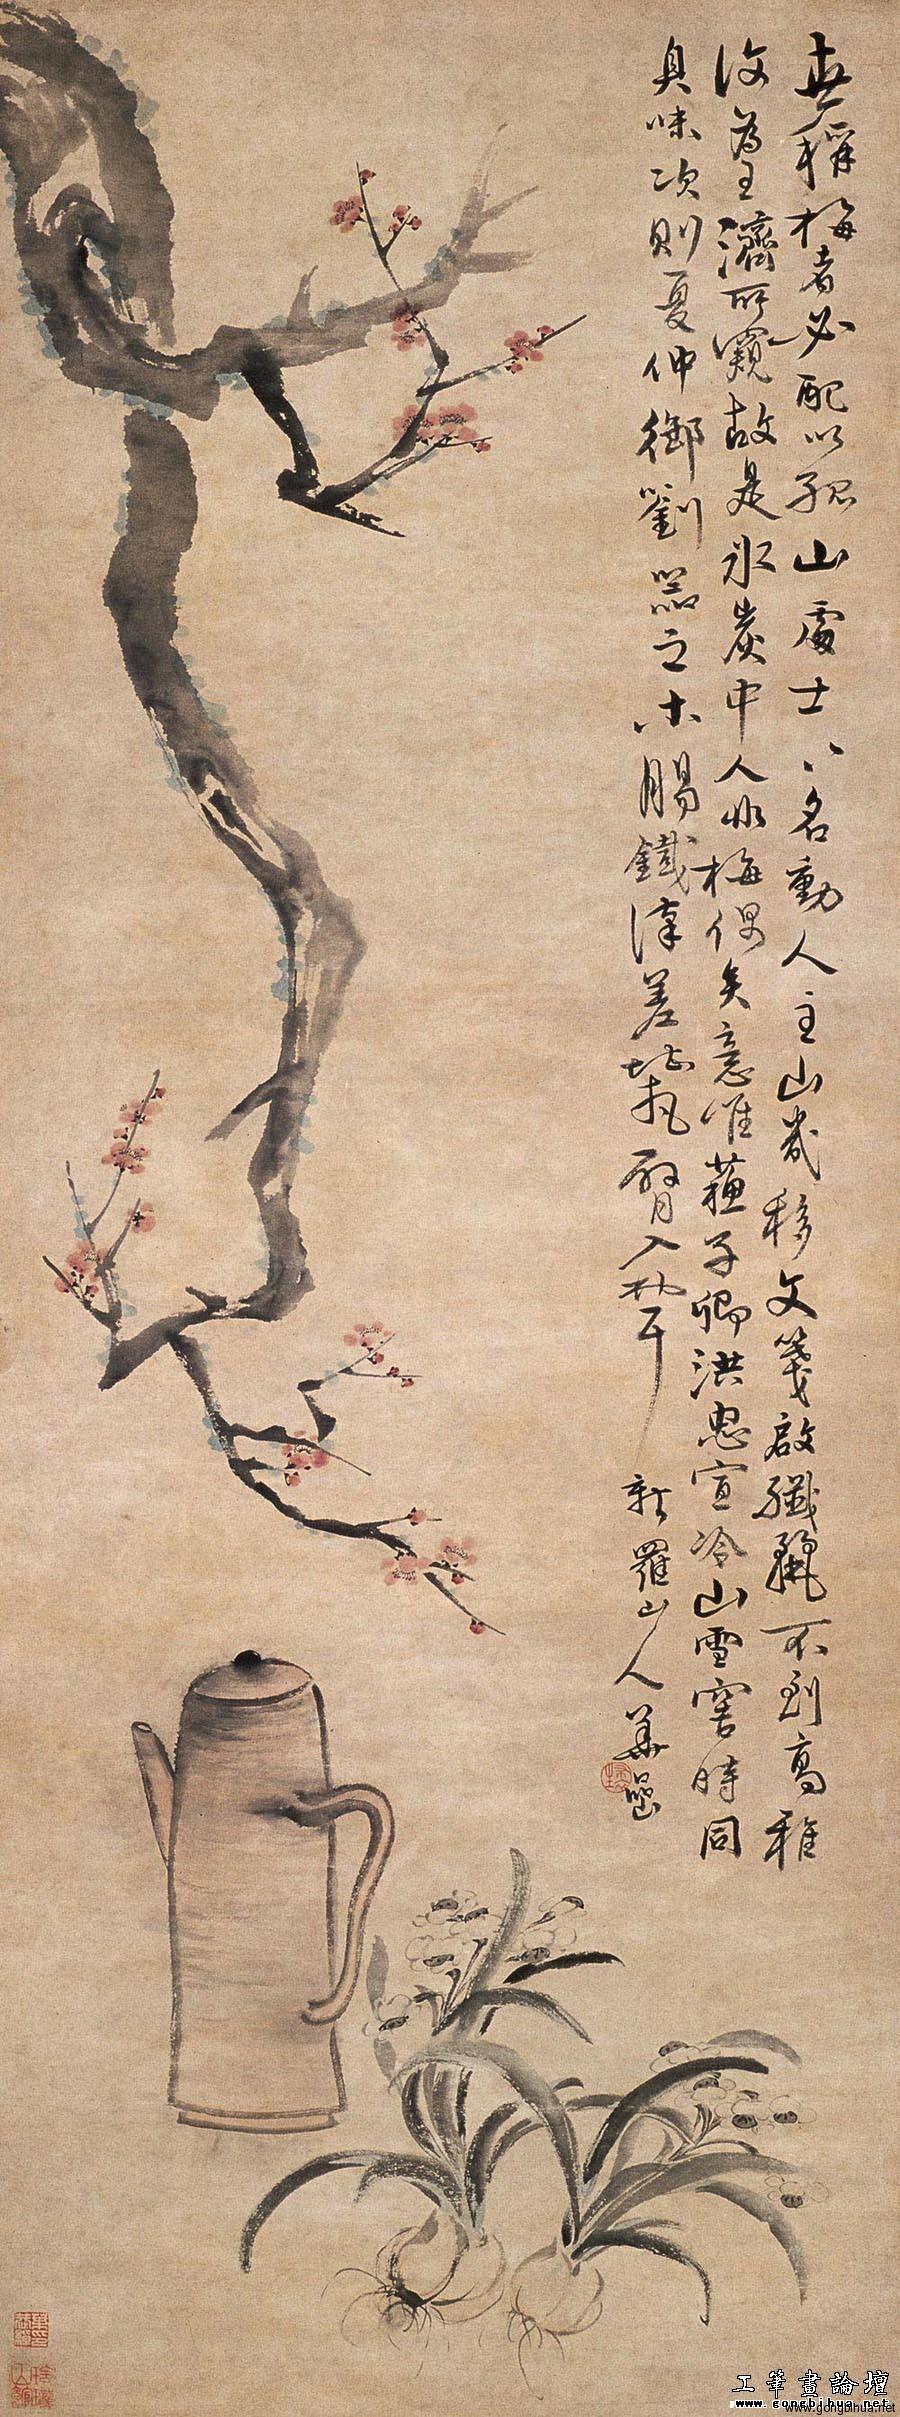 世稱梅者必配以孤山處士〻名動人主山幾移文箋啟纖不到高雅
後為王濟所窺故是冰炭中人非梅偶矣意唯蘇子卿洪忠宣冷山雪窖時同
臭味次則夏仲御劉器之木腸鐵漢差堪把臂入林耳
新羅山人華嵒
工筆畫論壇
www.gongbihua.net
www.gongbihua.net